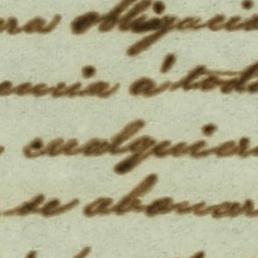 ra obligacio
encia á toda
cualquiera
se abonar